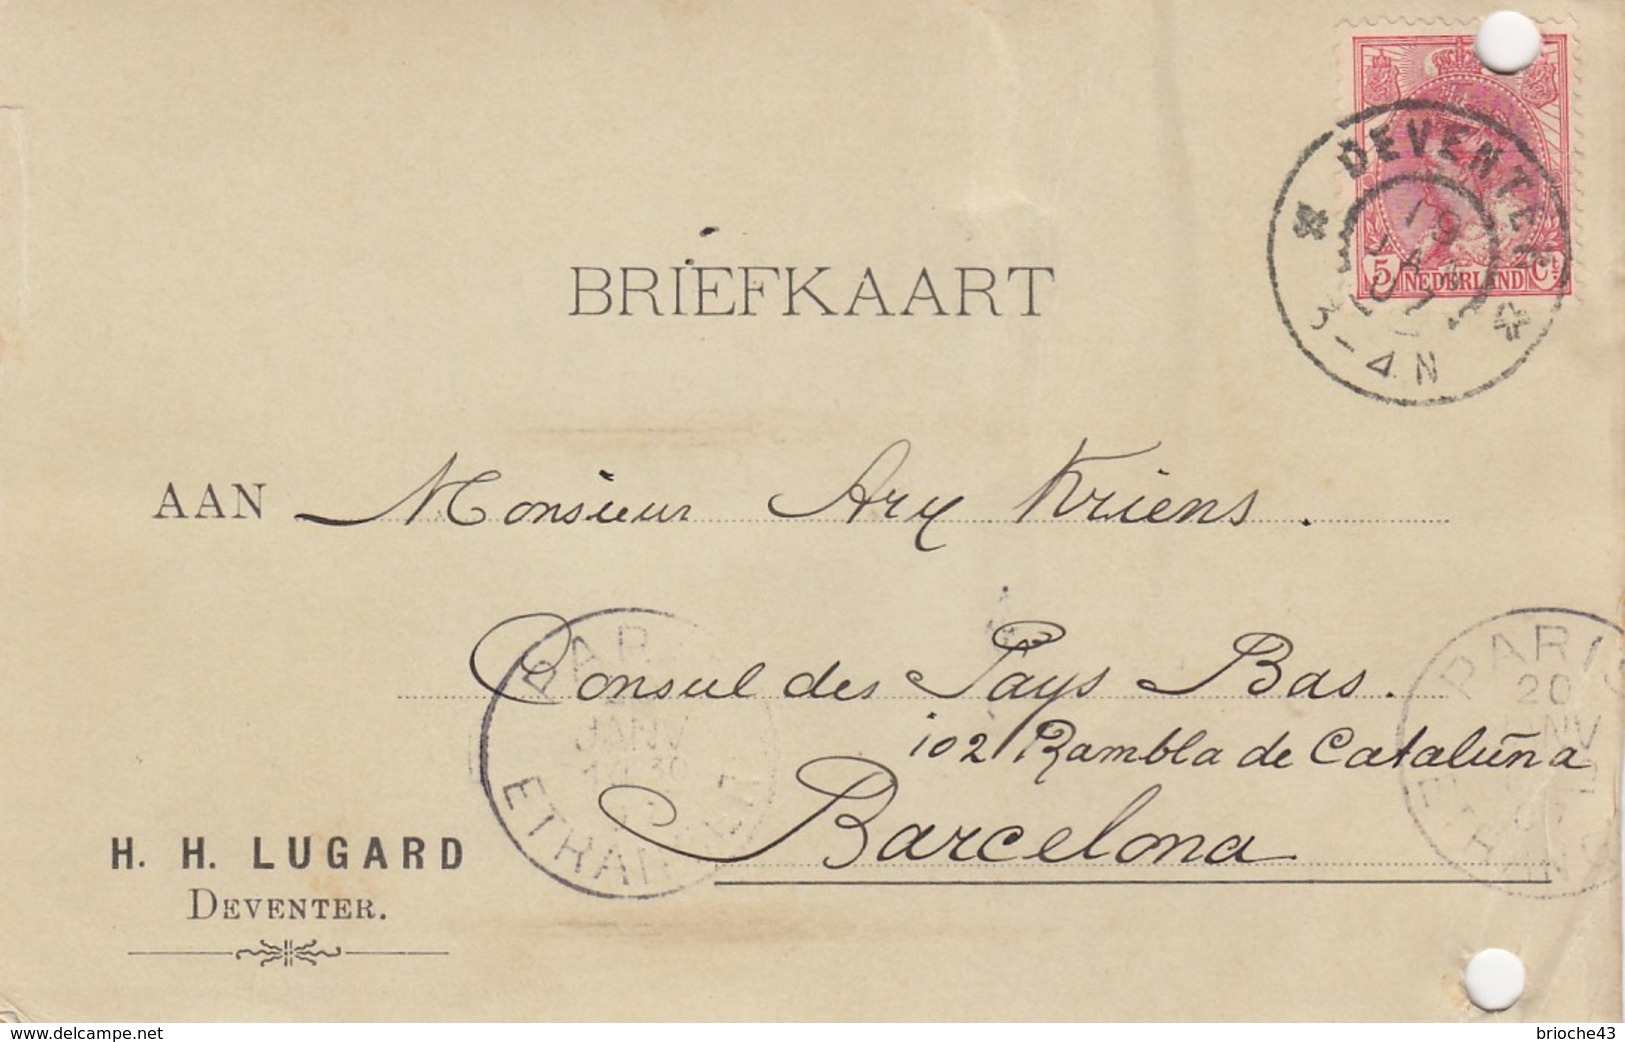 DEVENTER
19
JAN
07
3-4N
5 NEDERLAND Ct
BRIEFKAART
AAN Monsieur Ary Kriens.
Consul des Pays Bas.
102 Rambla de Cataluña
Barcelona
PARIS
JANV
ETRANGER
PARIS
20
JANV
07
ETRANGER
H. H. LUGARD
DEVENTER.
www.delcampe.net
brioche43